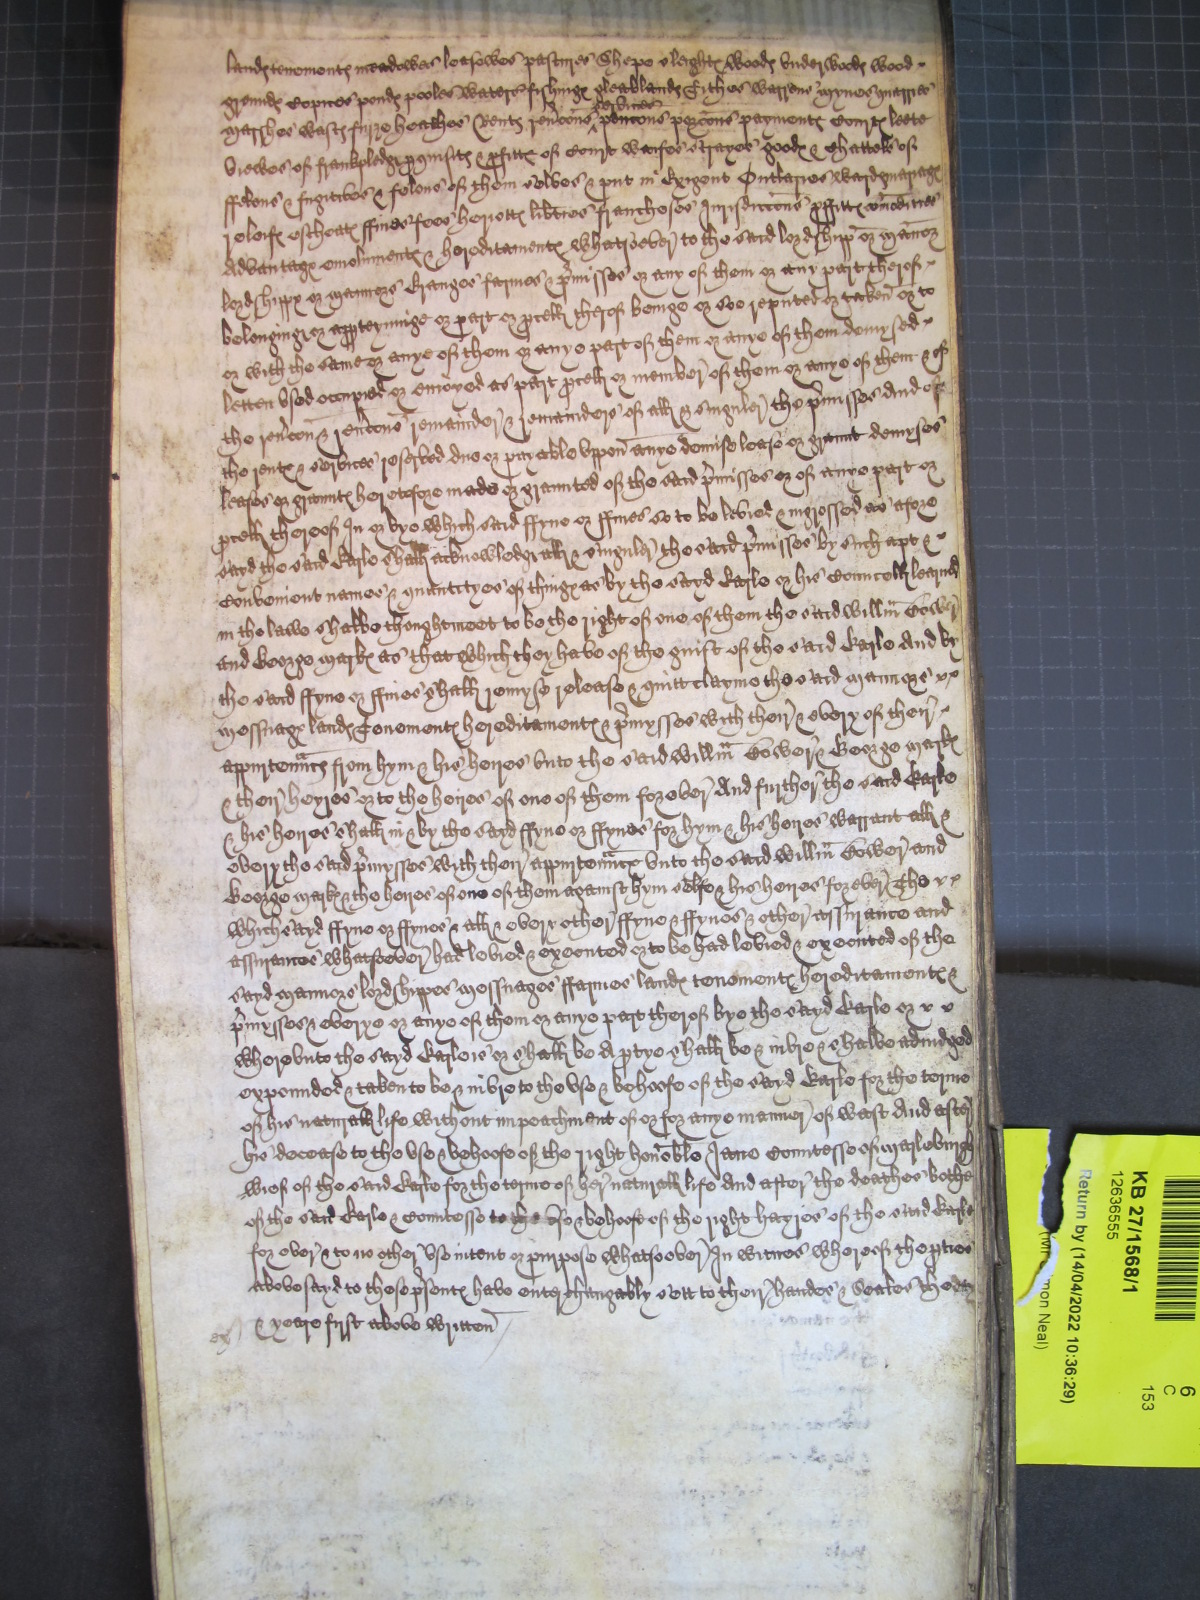 land tenement meadowes leasowes pastures Shepe sleight wood underwood wood
ground copices pond pooles waters fishing gleabland Tithes warrens mynes quarries
marshes wast furze heathes Rent reucons services pencons porcons payment Court leete
viewes of frankpledg pquisit & pfitt of Court waifes strayes good & Chattels of
ffelons & fugitives & felons of them selves & put in Exigent Outlaries wardg mariag
releif escheat ffines fees heriott libties franchoses Jurisdiccons pffitt comodities
Advantag emolument & hereditament whatsoever to the said lordshipp or manor
lordshipp or mannors Granges farmes & pmisses or any of them or any part therof
belonging or apperteyninge or part or pcell therof beinge or soe reputed or taken or to
or with the same or anye of them or anye part of them or anye of them demysed
letten used occupied or enioyed as part pcell or member of them or anye of them & of
the reucon & reucons remainder & remainders of all & singuler the pmisses And of
the rent & services reserved due or payable uppon anye demise lease or graunt demyses
leases or graunt heretofore made or graunted of the said pmisses or of anye part or
pcell thereof In or bye which said ffyne or ffines so to be levied & ingrossed as afore
sayd the said Earle shall acknowledg all & singuler the said pmisses by such apt &
convenient names & quantityes of thing as by the sayd Earle or his Councell learned
in the lawe shalbe thought meet to be the right of one of them the said Willm Gower
and George mark as that which they have of the guift of the said Earle And by
the said ffyne or ffines shall remyse release & quitt clayme the said mannors
messuag land Tenement hereditament & pmysses with their & every of their
appurtennc from hym & his heires unto the said Willm Gower & George mark
& their heyres or to the heires of one of them for ever And further the said Earle
& his heires shall in & by the sayd ffyne or ffynes for hym & his heires warrant all &
every the said pmysses with their appurtennc unto the said Willm Gower and
George mark & the heires of one of them against hym selfe & his heires for ever The
which sayd ffyne or ffynes & all & every other ffyne & ffynes & other assurance and
assurances whatsoever had levied & executed or to be had levied & executed of the
sayd mannors lordshippes messuages ffarmes land tenement hereditament &
pmysses & everye or anye of them or anye part therof bye the sayd Earle or
wherevnto the sayd Earle is or shall be A ptye shall be & inure & shalbe adiudged
expounded & taken to be & inure to the use & behoofe of the sayd Earle for the terme
of his naturall life without impeachment of or for anye manner of wast And after
his decease to the use & behoofe of the right honoble Jane Countesse of
wief of the said Earle for the terme of her naturall life And after the deathes bothe
of the said Earle & Countesse to the use & behoofe of the right hayres of the said Earle
for ever & to no other use intent or purpose whatsoever In witnes whereof the pties
abovesayd to these psent have enterchangably sett to their handes & Seales the day
& yeare first above written
KB 27/1568/1
12636555
Return by (14/04/2022 10:36:29)
mon Neal)
6
C
153